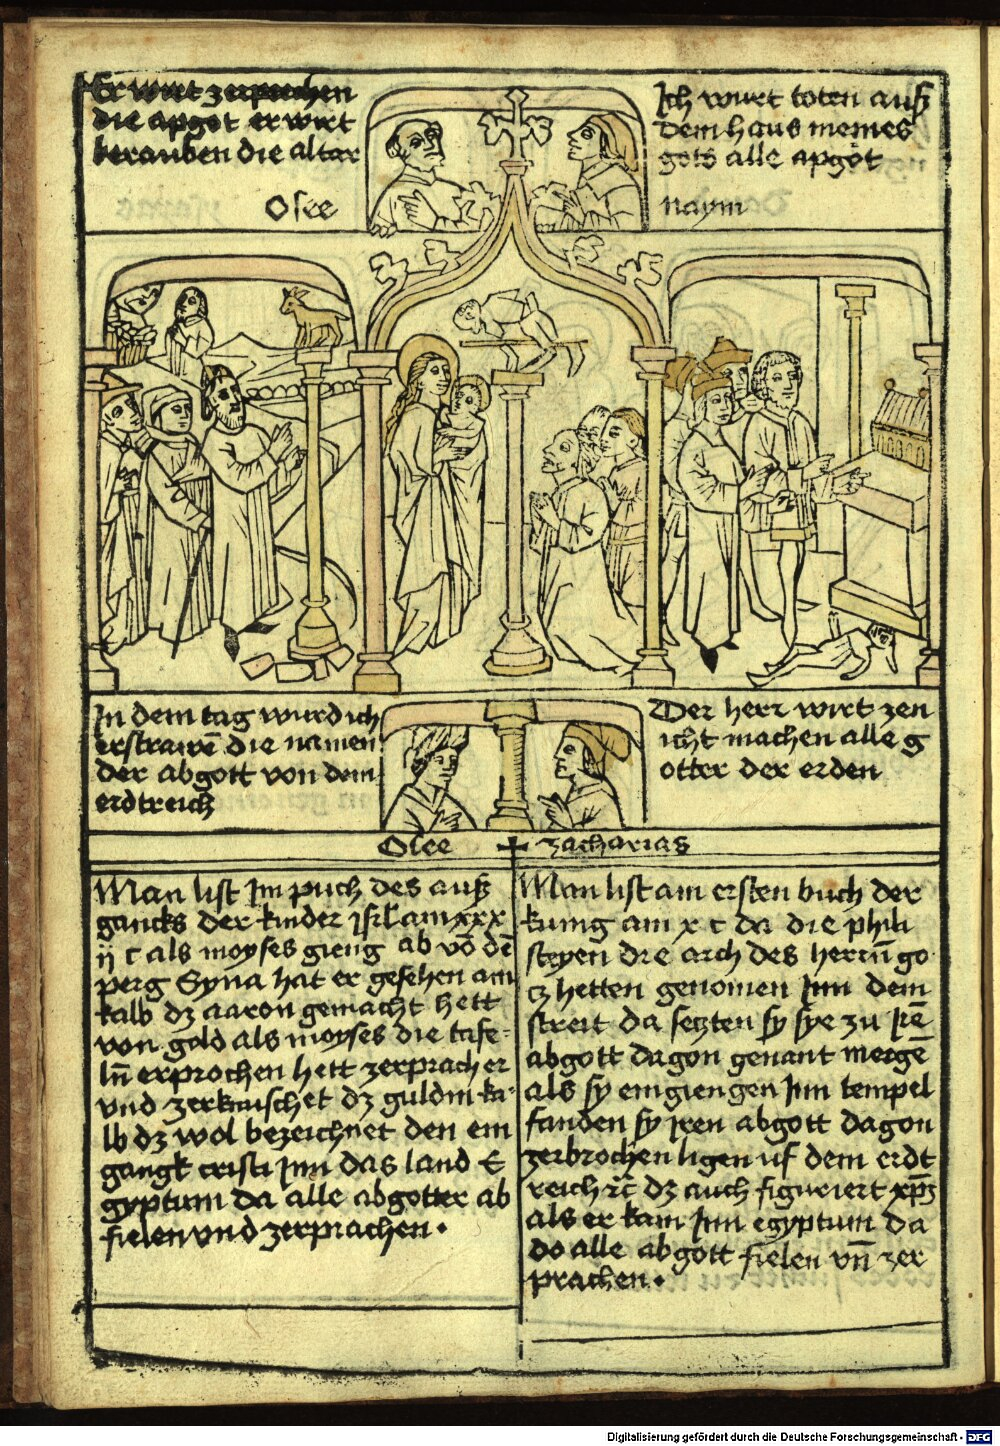 Er wirt zerprechen
die apgot er wirt
berauben die altar
Osee
Ich wurt toten auß
dem haus meines
gots alle apgot
naym
In dem tag wurd ich
erstrawē die namen
der abgott von dem
erdtreich
Der herr wirt zen
icht machen alle g
otter der erden
Osee
zacharias
Man list Im puch des auß
gancks der kinder isrl am xxx
ij c als moyses gieng ab vō dē
perg Syna hat er gesehen am
kalb dz aaron gemacht hett
von gold als moyses die tafe-
ln̄ erprochen hett zerprach er
vnd zerknischet dz guldin ka-
lb dz wol bezeichnet den ein
gangk cristi Inn das land E
gyptum da alle abgotter ab
fielen vnd zerprachen.
Man list am ersten buch der
kunig am x c da die phili
steyen die arch des herrn̄ go
cz hetten genomen Inn dem
streit da seczten sy sye zu Irē
abgott dagon genant mergē
als sy eingiengen Inn tempel
fanden sy Iren abgott dagon
zerbrochen ligen uf dem erdt
reich rc̄ dz auch figuriert xp̄s
als er kam Inn egyptum da
do alle abgott fielen vn̄ zer
prachen.
Digitalisierung gefördert durch die Deutsche Forschungsgemeinschaft - DFG